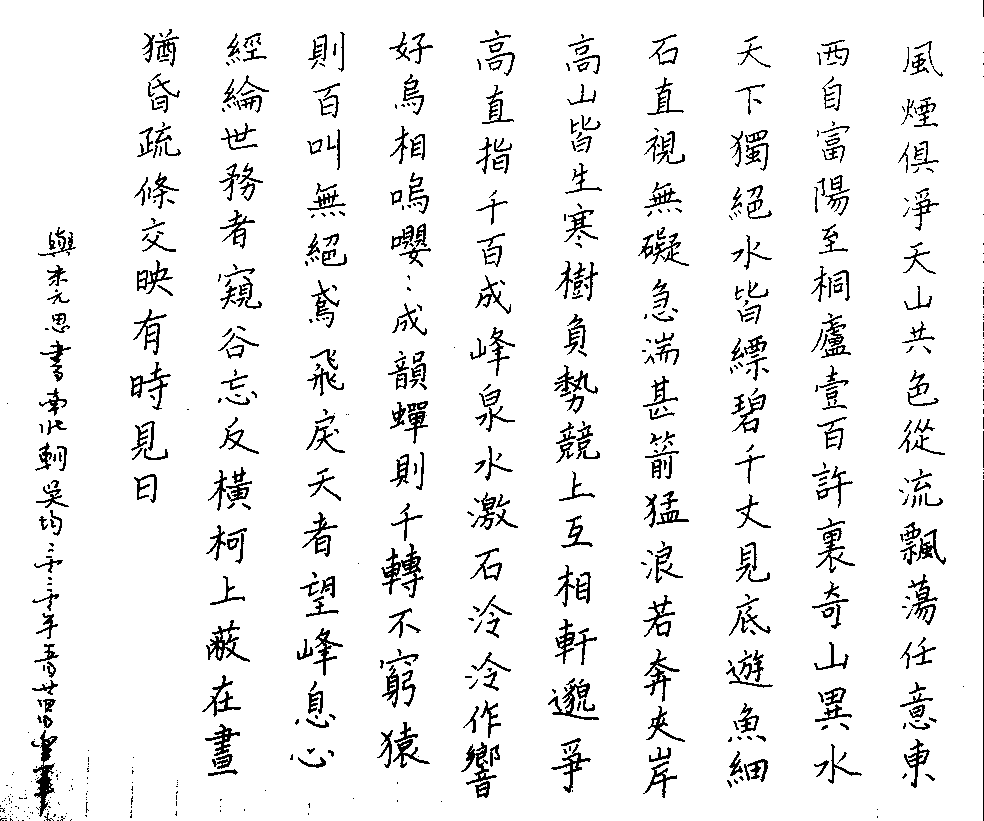 風煙俱凈天山共色從流飄蕩任意東
西自富陽至桐廬壹百許裏奇山異水
天下獨絕水皆縹碧千丈見底遊魚細
石直視無礙急湍甚箭猛浪若奔夾岸
高山皆生寒樹負勢競上互相軒邈爭
高直指千百成峰泉水激石泠泠作響
好鳥相鳴嚶：成韻蟬則千轉不窮猿
則百叫無絕鳶飛戾天者望峰息心
經綸世務者窺谷忘反橫柯上蔽在晝
猶昏疏條交映有時見日
與朱元思書南北朝吳均